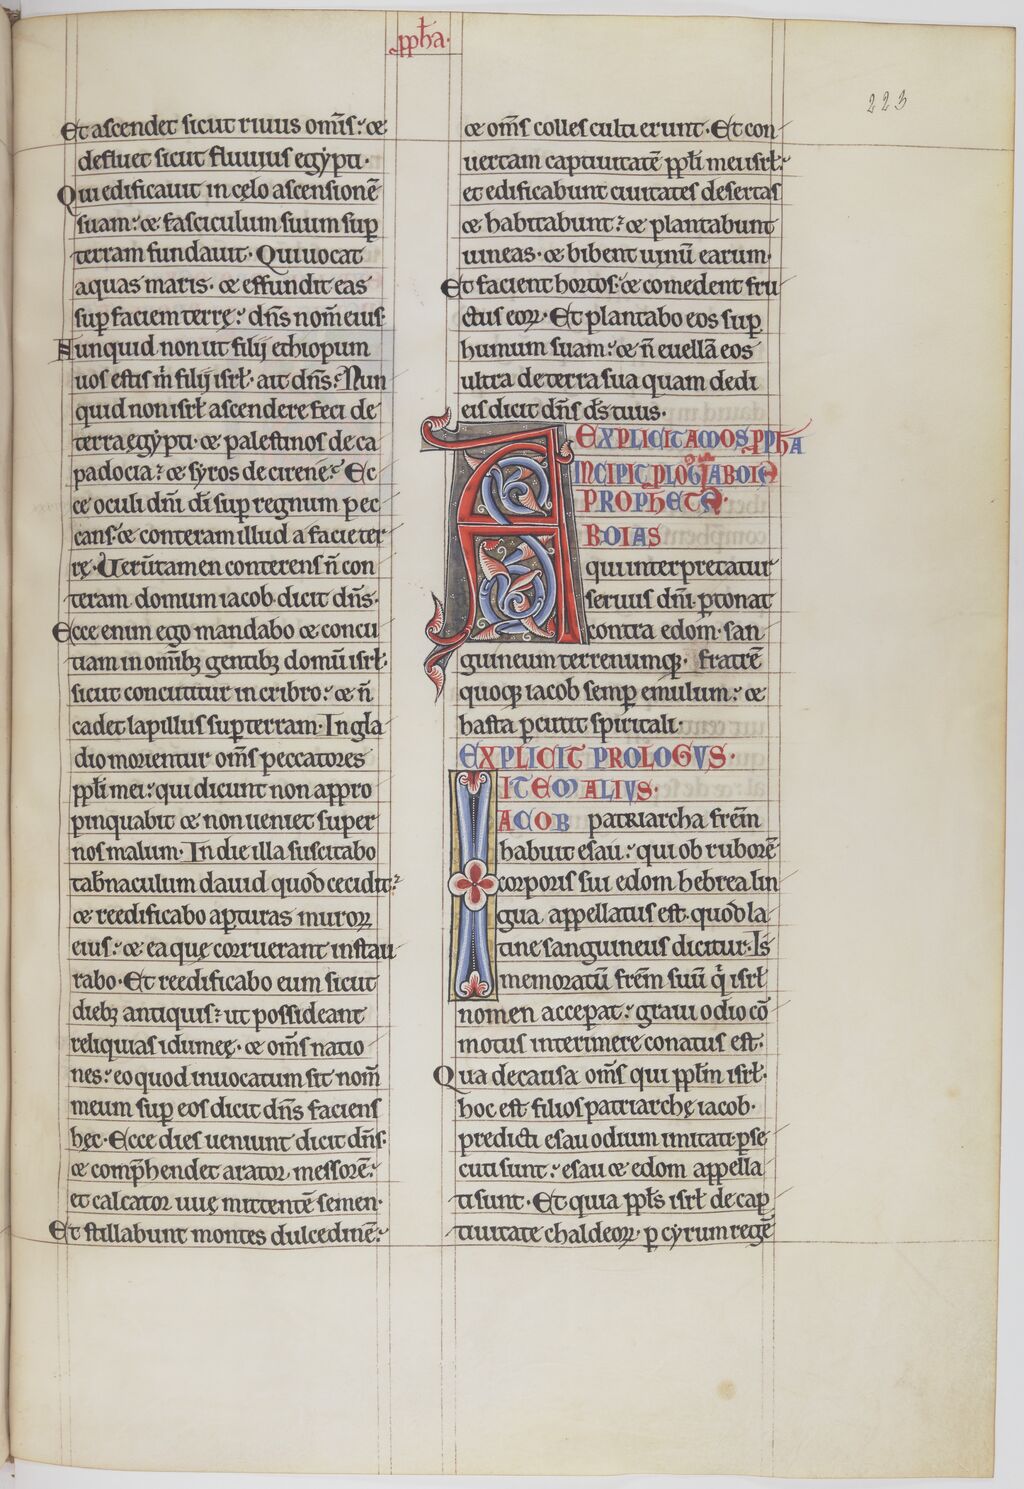 pp̄ha.
223
Et ascendet sicut riuus om̄is: &
defluet sicut fluuius egẏpti.
Qui edificauit in cęlo ascensionē
suam: & fasciculum suum sup̱
terram fundauit. Qui uocat
aquas maris. & effundit eas
sup̱ faciem terrę: dn̄s nom̄ eius.
Nunquid non ut filij ethiopum
uos estis m̄ filij isrł. ait dn̄s: Nun
quid non isrł ascendere feci de
terra egẏpti. & palestinos de ca
padocia: & sẏros de cirene: Ec
ce oculi dn̄i dī sup̱ regnum pec
cans: & conteram illud a facie ter
rę. Uerūtamen conterens n̄ con
teram domum iacob dicit dn̄s.
Ecce enim ego mandabo & concu
tiam in om̄ibꝫ gentibꝫ domū isrł.
sicut concutitur in cribro: & n̄
cadet lapillus sup̱ terram. In gla
dio morientur om̄s peccatores
pp̄li mei: qui dicunt non appro
pinquabit & non ueniet super
nos malum. In die illa suscitabo
tab̄naculum dauid quod cecidit:
& reedificabo ap̱turas muroꝝ
eius: & ea quę corruerant instau
rabo. Et reedificabo eum sicut
diebꝫ antiquis: ut possideant
reliquias idumeę. & om̄s natio
nes: eo quod inuocatum sit nom̄
meum sup̱ eos dicit dn̄s faciens
hęc. Ecce dies ueniunt dicit dn̄s.
& comp̄hendet arator messorē:
et calcator uuę mittentē semen.
Et stillabunt montes dulcedinē:
& om̄s colles culti erunt. Et con
uertam captiuitatē pp̄li mei isrł:
et edificabunt ciuitates desertas
& habitabunt: & plantabunt
uineas. & bibent uinū earum.
Et facient hortos: & comedent fru
ctus eoꝝ. Et plantabo eos sup̱
humum suam: & n̄ euellā eos
ultra de terra sua quam dedi
eis dicit dn̄s ds̄ tuus.
EXPLICIT AMOS PP̄HA
INCIPIT PLOG̅
PROPHETA.
ABDIAS
qui interpretatur
seruus dn̄i p̱tonat
contra edom. san
guineum terrenumqꝫ. fratrē
quoqꝫ iacob semp̱ emulum: &
hasta p̱cutit spiritali.
EXPLICIT PROLOGVS.
ITEM ALIVS.
IACOB patriarcha frēm
habuit esau: qui ob ruborē
corporis sui edom hebrea lin
gua appellatus est. quod la
tine sanguineus dicitur. Is
memoratū frēm suū qͥ isrł
nomen acceꝑat: graui odio cō
motus interimere conatus est.
Qua de causa om̄s qui pp̄lm isrł.
hoc est filios patriarchę iacob.
predicti esau odium imitati p̱se
cuti sunt: esau & edom appella
ti sunt. Et quia pp̄ls isrł de cap
tiuitate chaldeoꝝ. p̱ cẏrum regē